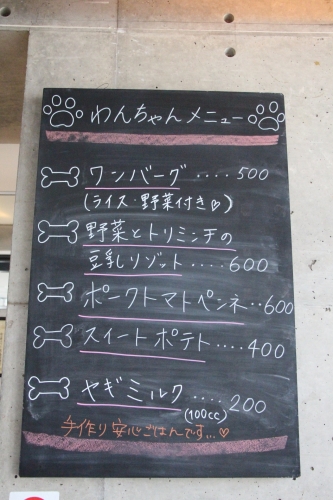 わんちゃんメニュー
ワンバーグ ‥‥ 500
(ライス・野菜付き♡)
野菜とトリミンチの
豆乳リゾット ‥‥ 600
ポークトマトペンネ ‥ 600
スイートポテト ‥‥ 400
ヤギミルク ‥‥ 200
(100cc)
手作り安心ごはんです…♡